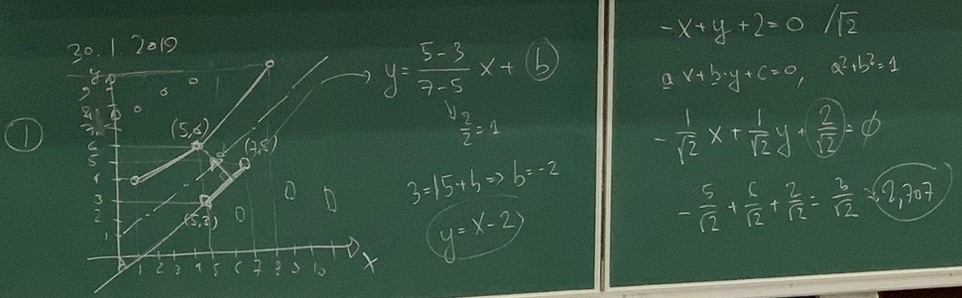 30. 1. 2019
y
①
6
5
4
3
2
1
(5,6)
(7,5)
(5,3)
1 2 3 4 5 6 7 8 9 10 x
y = \frac{5-3}{7-5} x + b
\frac{2}{2} = 1
3=1·5+b => b=-2
y=x-2
-x+y+2=0 /√2
a·x+b·y+c=0, a²+b²=1
-\frac{1}{√2} x + \frac{1}{√2} y + \frac{2}{√2} = 0
-\frac{5}{√2} + \frac{6}{√2} + \frac{2}{√2} = \frac{3}{√2} = 2,707